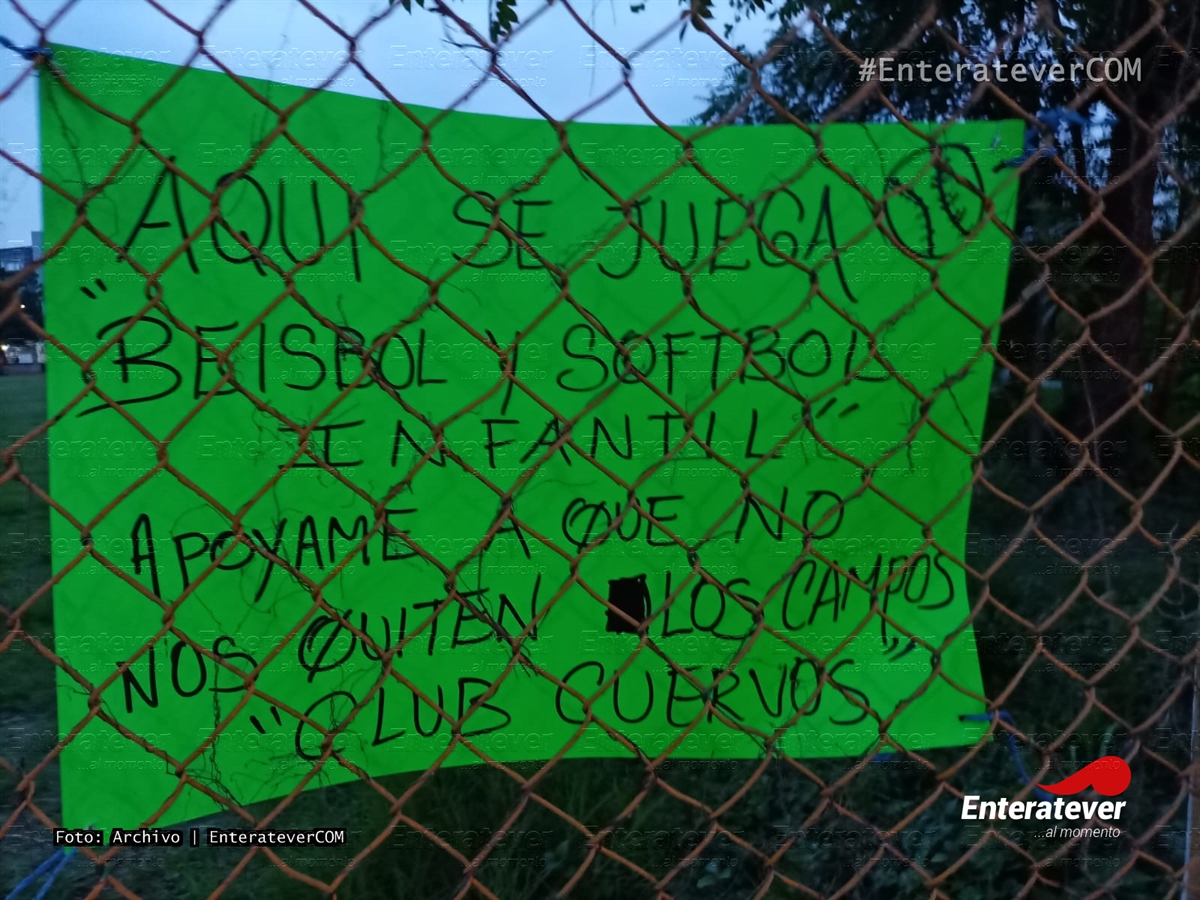 #EnterateverCOM
AQUI SE JUEGA
"BEISBOL Y SOFTBOL
INFANTIL"
APOYAME A QUE NO
NOS QUITEN LOS CAMPOS
"CLUB CUERVOS"
Enteratever
...al momento
Foto: Archivo | EnterateverCOM